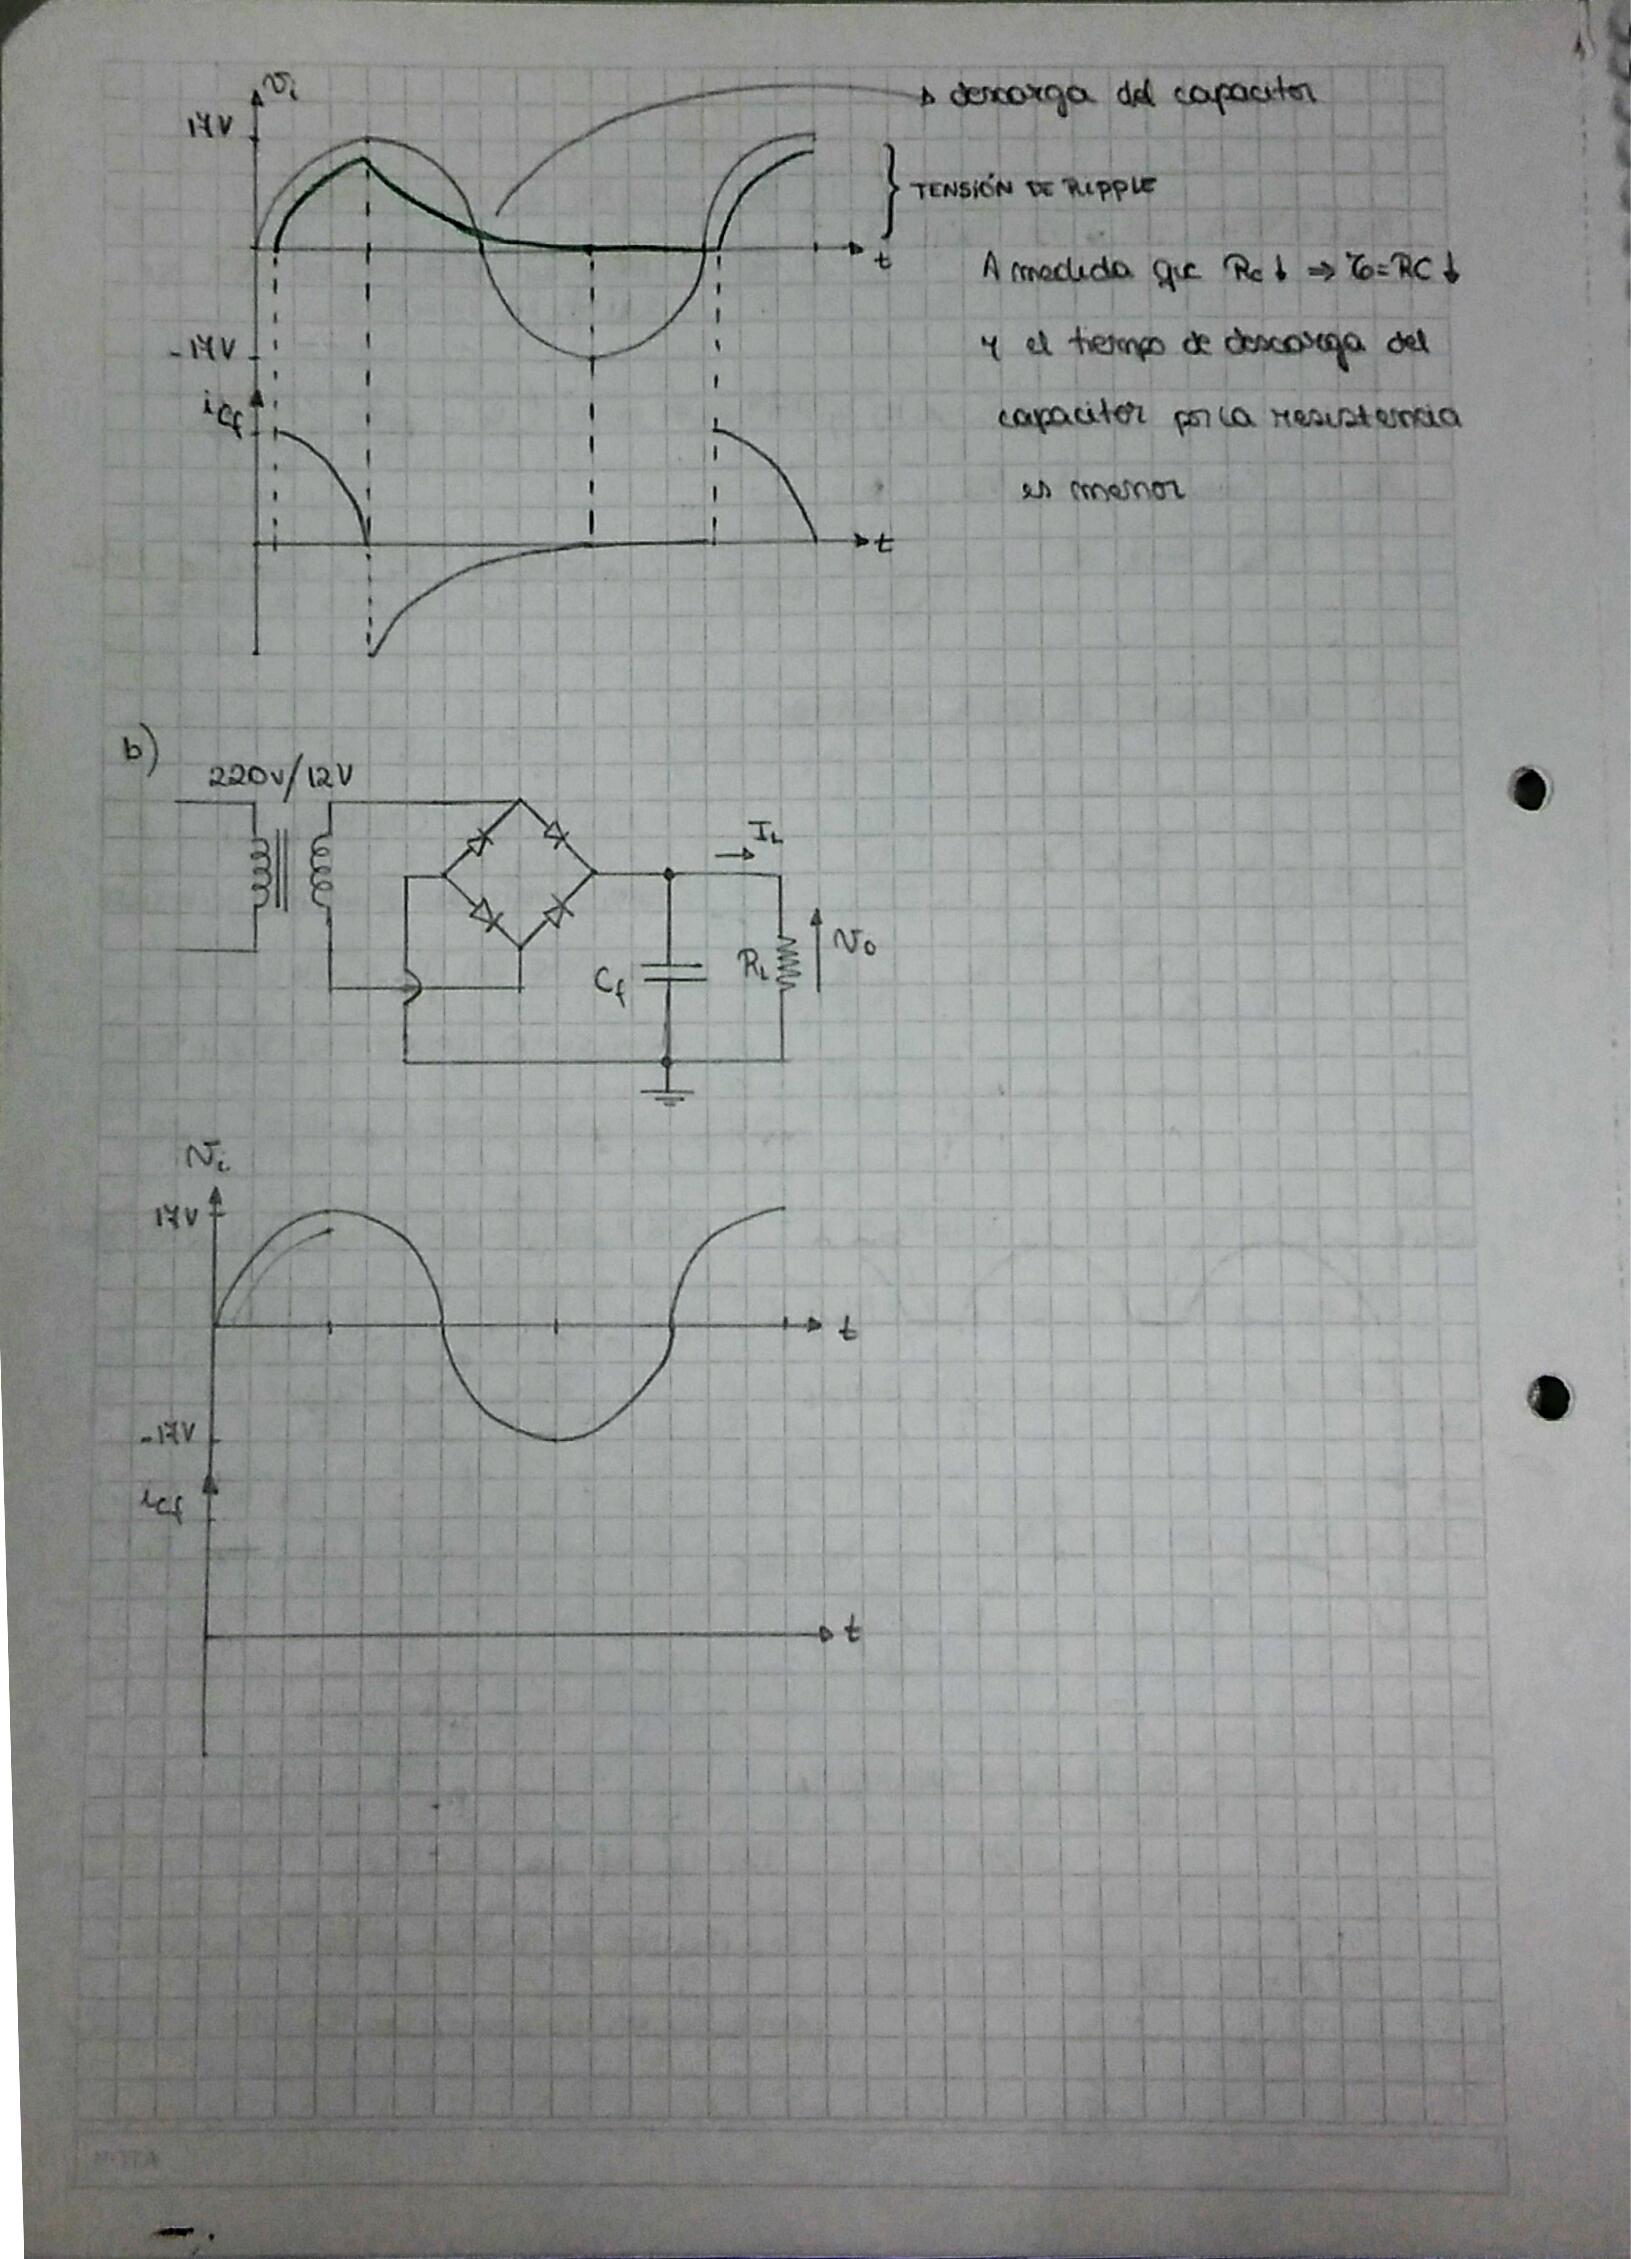 vi
17V
descarga del capacitor
TENSIÓN DE RIPPLE
t
A medida que Rc↓ ⇒ τ=RC↓
-17V
y el tiempo de descarga del
iCf
capacitor por la resistencia
es menor
t
b)
220V/12V
IL
Cf
RL
vo
vi
17V
t
-17V
iCf
t
NOTA